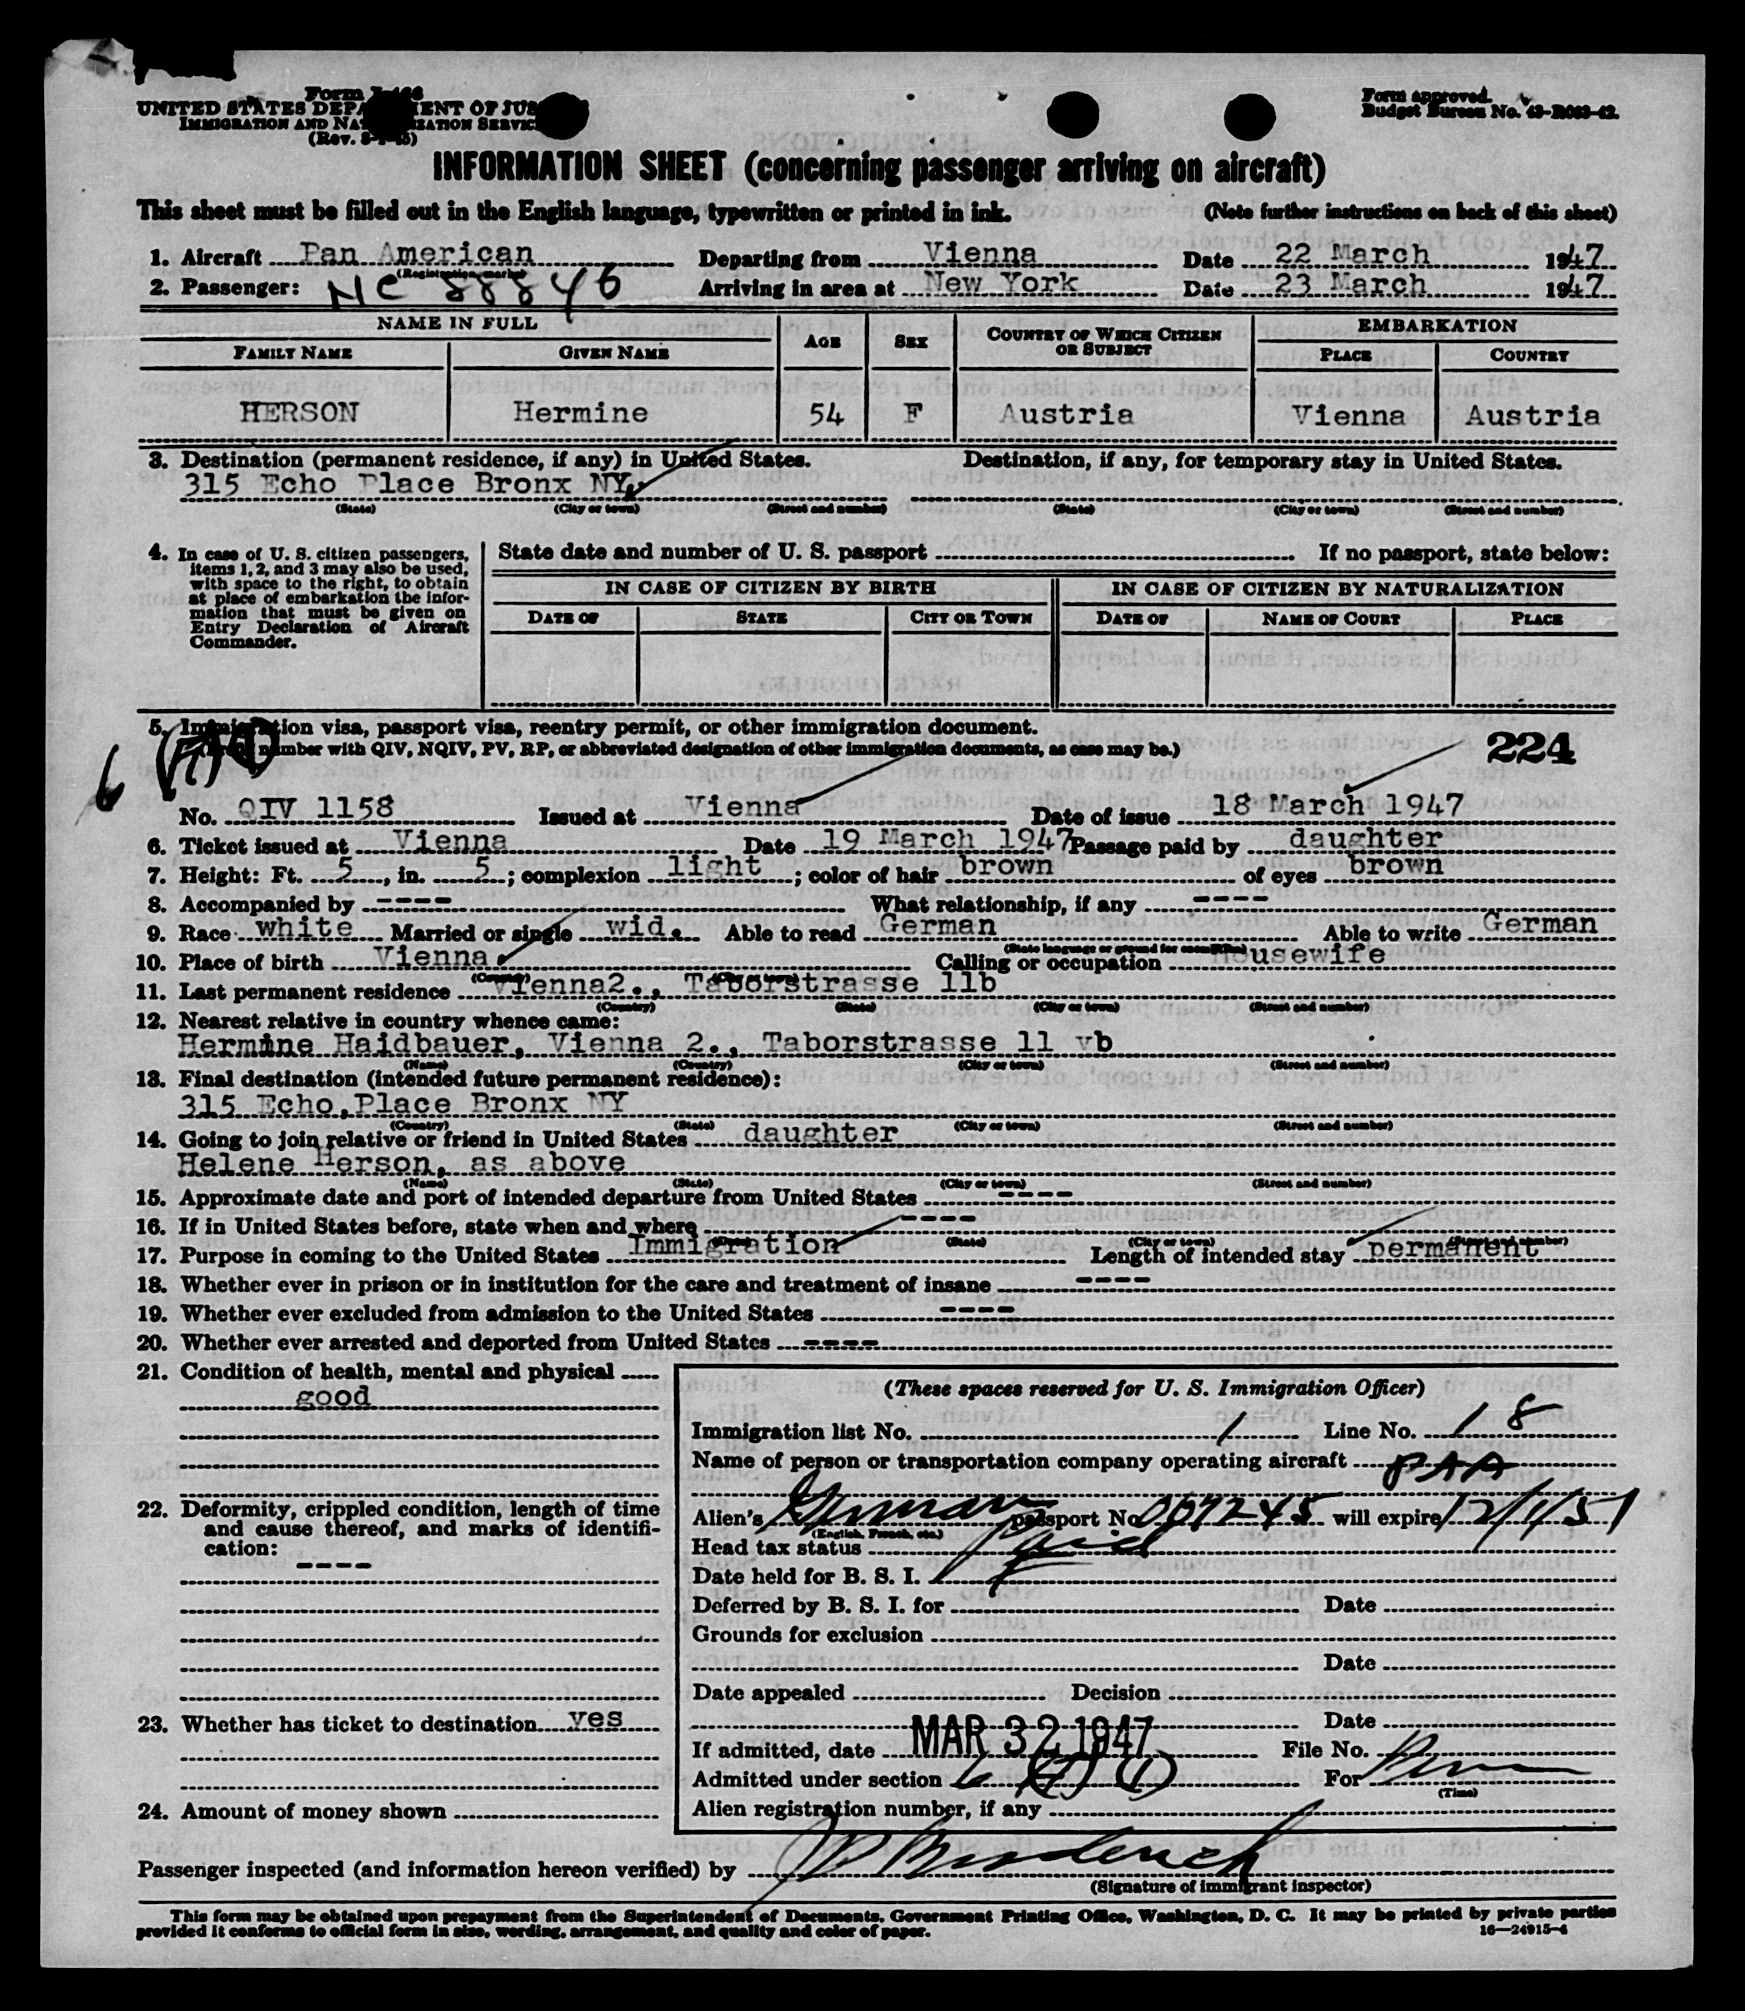 Form I-466
UNITED STATES DEPARTMENT OF JUSTICE
IMMIGRATION AND NATURALIZATION SERVICE
Form approved.
Budget Bureau No. 43-R083-42.
INFORMATION SHEET (concerning passenger arriving on aircraft)
This sheet must be filled out in the English language, typewritten or printed in ink. (Note further instructions on back of this sheet)
1. Aircraft Pan American Departing from Vienna Date 22 March 1947
(Registration marks)
2. Passenger: NC 88846 Arriving in area at New York Date 23 March 1947
NAME IN FULL AGE SEX COUNTRY OF WHICH CITIZEN OR SUBJECT EMBARKATION
FAMILY NAME GIVEN NAME PLACE COUNTRY
HERSON Hermine 54 F Austria Vienna Austria
3. Destination (permanent residence, if any) in United States. Destination, if any, for temporary stay in United States.
315 Echo Place Bronx NY.
(State) (City or town) (Street and number) (State) (City or town) (Street and number)
4. In case of U. S. citizen passengers,
items 1, 2, and 3 may also be used,
with space to the right, to obtain
at place of embarkation the infor-
mation that must be given on
Entry Declaration of Aircraft
Commander.
State date and number of U. S. passport If no passport, state below:
IN CASE OF CITIZEN BY BIRTH IN CASE OF CITIZEN BY NATURALIZATION
DATE OF STATE CITY OR TOWN DATE OF NAME OF COURT PLACE
5. Immigration visa, passport visa, reentry permit, or other immigration document.
number with QIV, NQIV, PV, RP, or abbreviated designation of other immigration documents, as case may be.) 224
6
No. QIV 1158 Issued at Vienna Date of issue 18 March 1947
6. Ticket issued at Vienna Date 19 March 1947 Passage paid by daughter
7. Height: Ft. 5, in. 5; complexion light; color of hair brown of eyes brown
8. Accompanied by ---- What relationship, if any ----
9. Race white Married or single wid. Able to read German Able to write German
10. Place of birth Vienna Calling or occupation Housewife
(Country) (City or town)
11. Last permanent residence Vienna2., Taborstrasse 11b
(Country) (State) (City or town) (Street and number)
12. Nearest relative in country whence came:
Hermine Haidbauer, Vienna 2., Taborstrasse 11 vb
(Name) (Country) (City or town) (Street and number)
13. Final destination (intended future permanent residence):
315 Echo.Place Bronx NY
(Country) (State) (City or town) (Street and number)
14. Going to join relative or friend in United States daughter
Helene Herson, as above
(Name) (State) (City or town) (Street and number)
15. Approximate date and port of intended departure from United States ----
16. If in United States before, state when and where ----
(Date) (State) (City or town) (Street and number)
17. Purpose in coming to the United States Immigration Length of intended stay permanent
18. Whether ever in prison or in institution for the care and treatment of insane ----
19. Whether ever excluded from admission to the United States ----
20. Whether ever arrested and deported from United States ----
21. Condition of health, mental and physical
good
22. Deformity, crippled condition, length of time
and cause thereof, and marks of identifi-
cation:
----
23. Whether has ticket to destination yes
24. Amount of money shown
(These spaces reserved for U. S. Immigration Officer)
Immigration list No. 1 Line No. 18
Name of person or transportation company operating aircraft PAA
Alien's German passport No. 007245 will expire 12/1/51
(English, French, etc.)
Head tax status Paid
Date held for B. S. I.
Deferred by B. S. I. for Date
Grounds for exclusion
Date
Date appealed Decision
Date
If admitted, date MAR 32 1947 File No.
Admitted under section 6 For Perm
(Time)
Alien registration number, if any
Passenger inspected (and information hereon verified) by
(Signature of immigrant inspector)
This form may be obtained upon prepayment from the Superintendent of Documents, Government Printing Office, Washington, D. C. It may be printed by private parties
provided it conforms to official form in size, wording, arrangement, and quality and color of paper. 16—24915-4